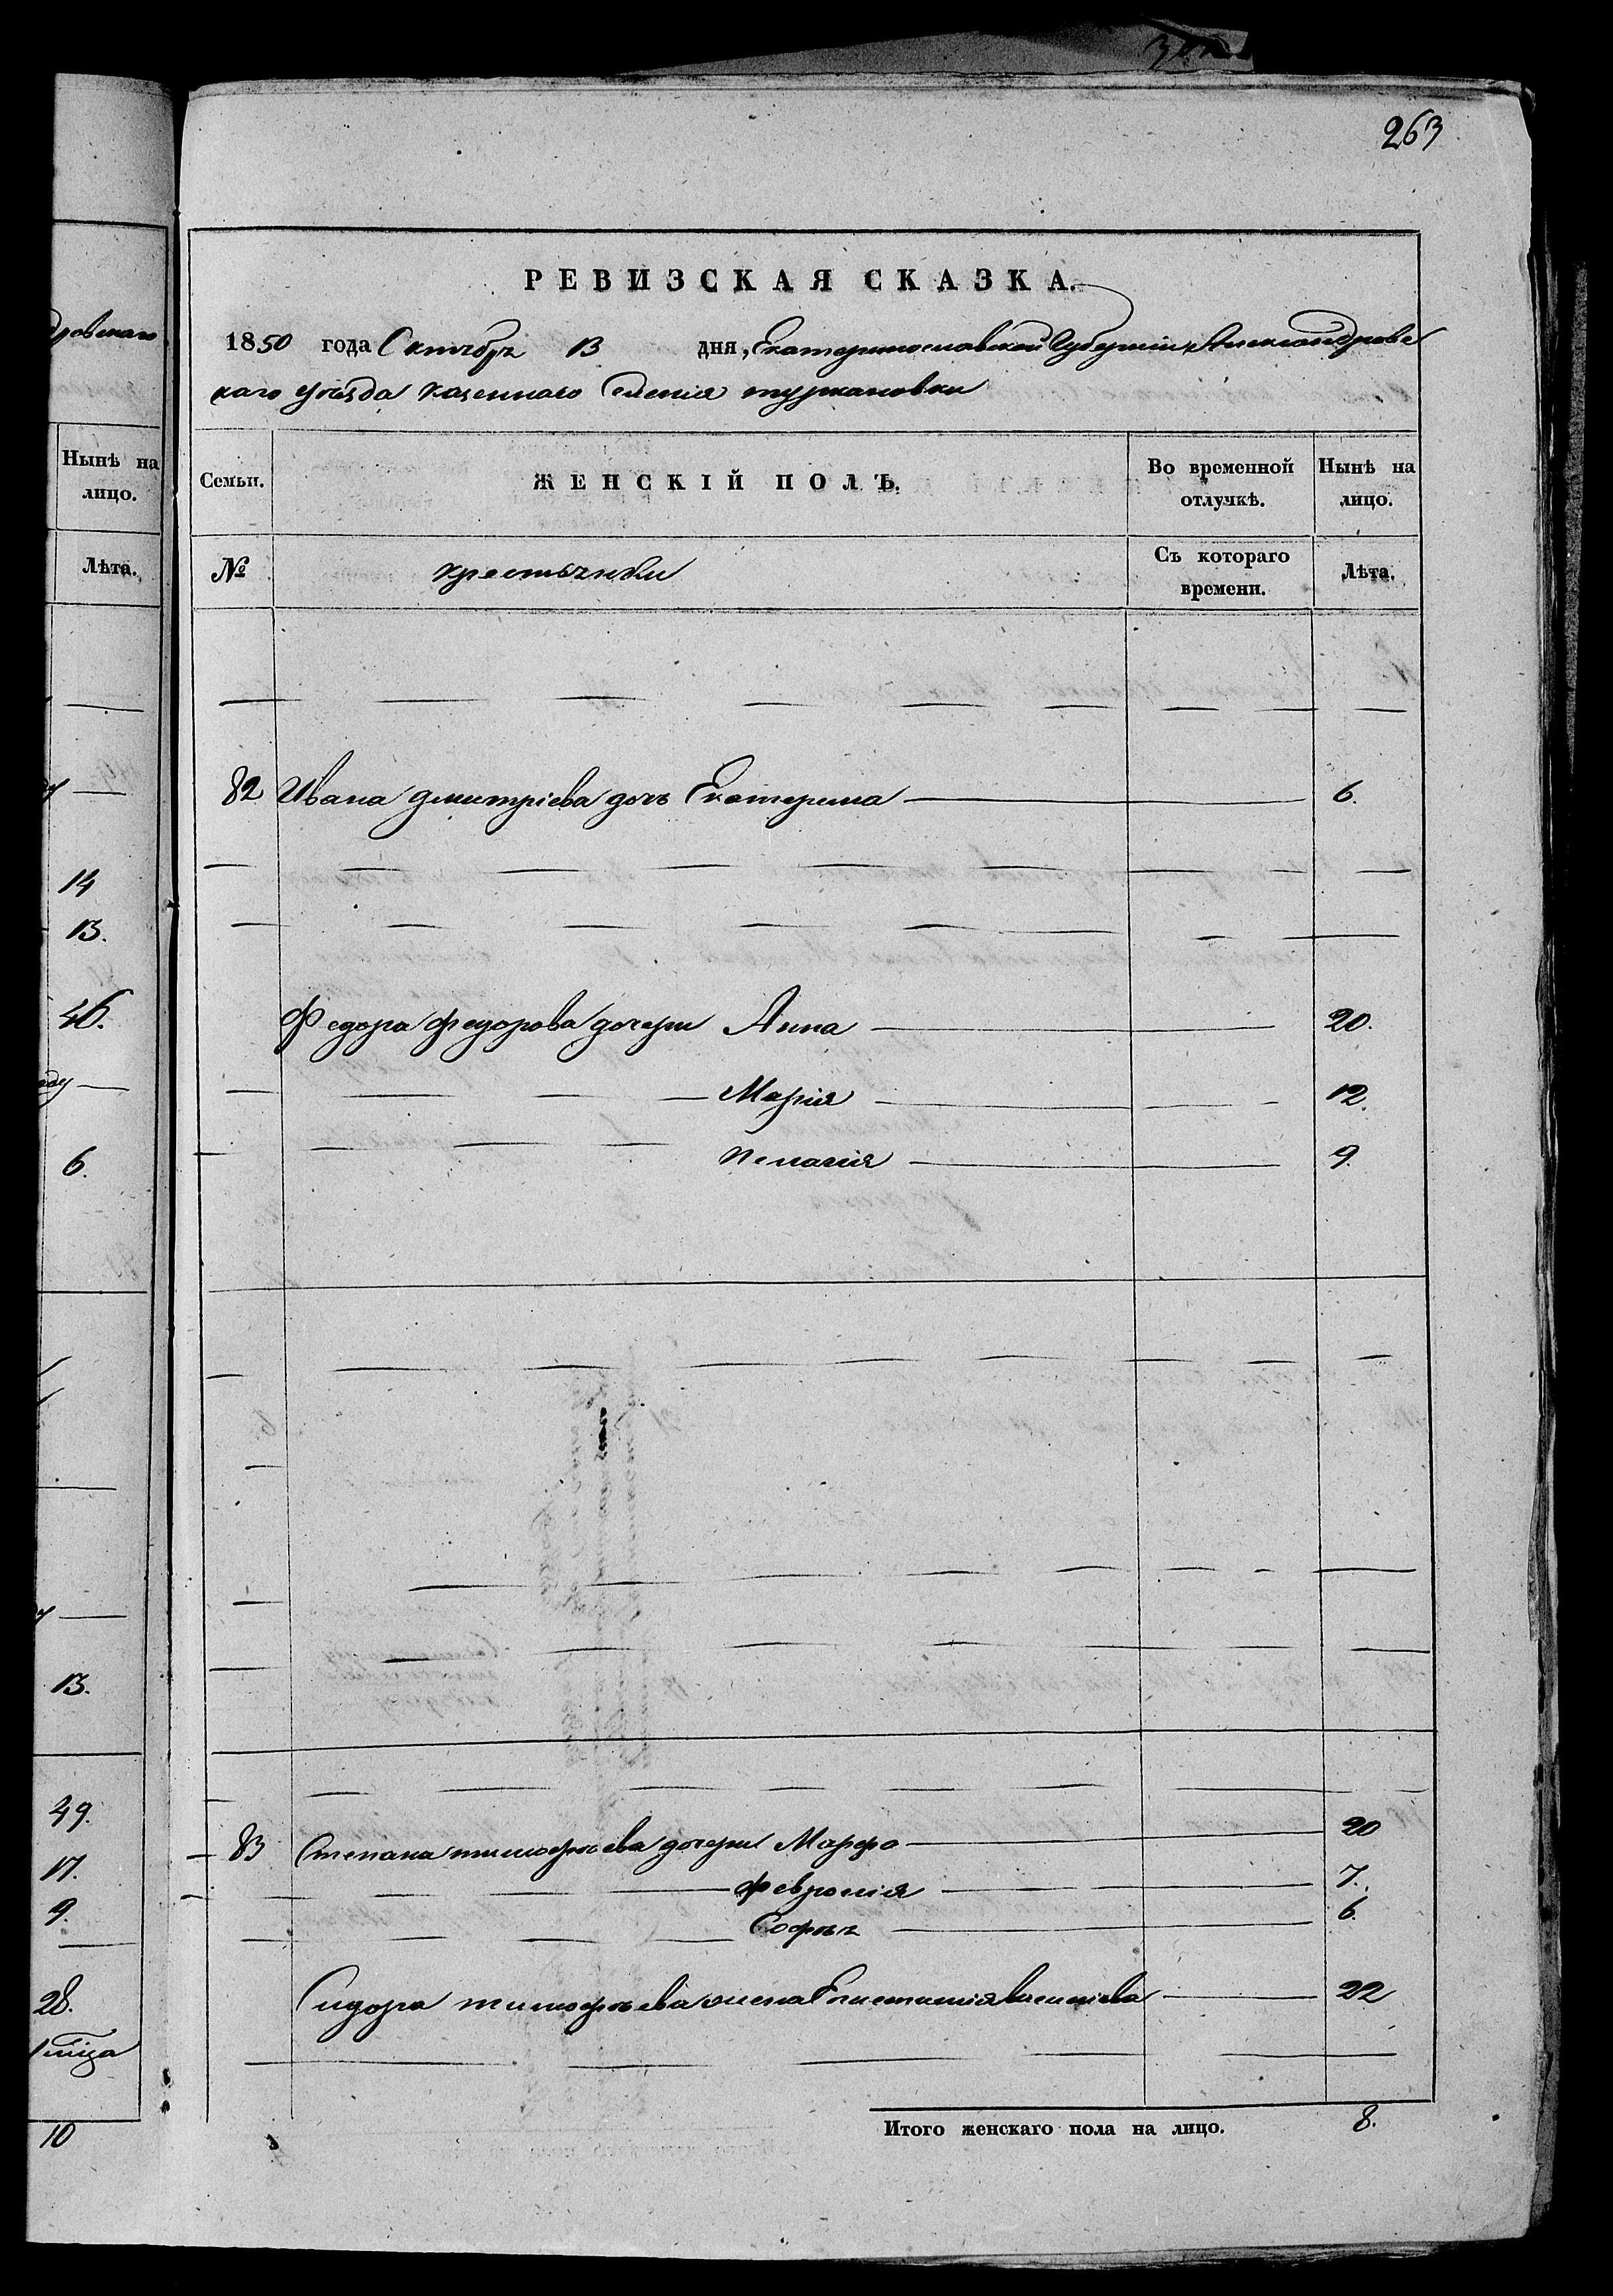 263
РЕВИЗСКАЯ СКАЗКА.
1850 года Октября 13 дня, Екатеринославской Губерніи Александровс
каго уѣзда казеннаго селенія туркановки
Семьи.
ЖЕНСКІЙ ПОЛЪ.
Во временной отлучкѣ.
Нынѣ на лицо.
№
крестьянки
Съ котораго времени.
Лѣта.
82 Ивана дмитріева дочь Екатерина 6.
Федора федорова дочери Анна 20.
Марія 12.
Пелагія 9.
83 Степана тимофѣева дочери Марфа 20
Февронія 7.
Софья 6.
Сидора тимофѣева жена Епистимія васильева 22
Итого женскаго пола на лицо. 8.
Нынѣ на лицо.
Лѣта.
14
13.
46.
6.
13.
49.
17.
9.
28.
10